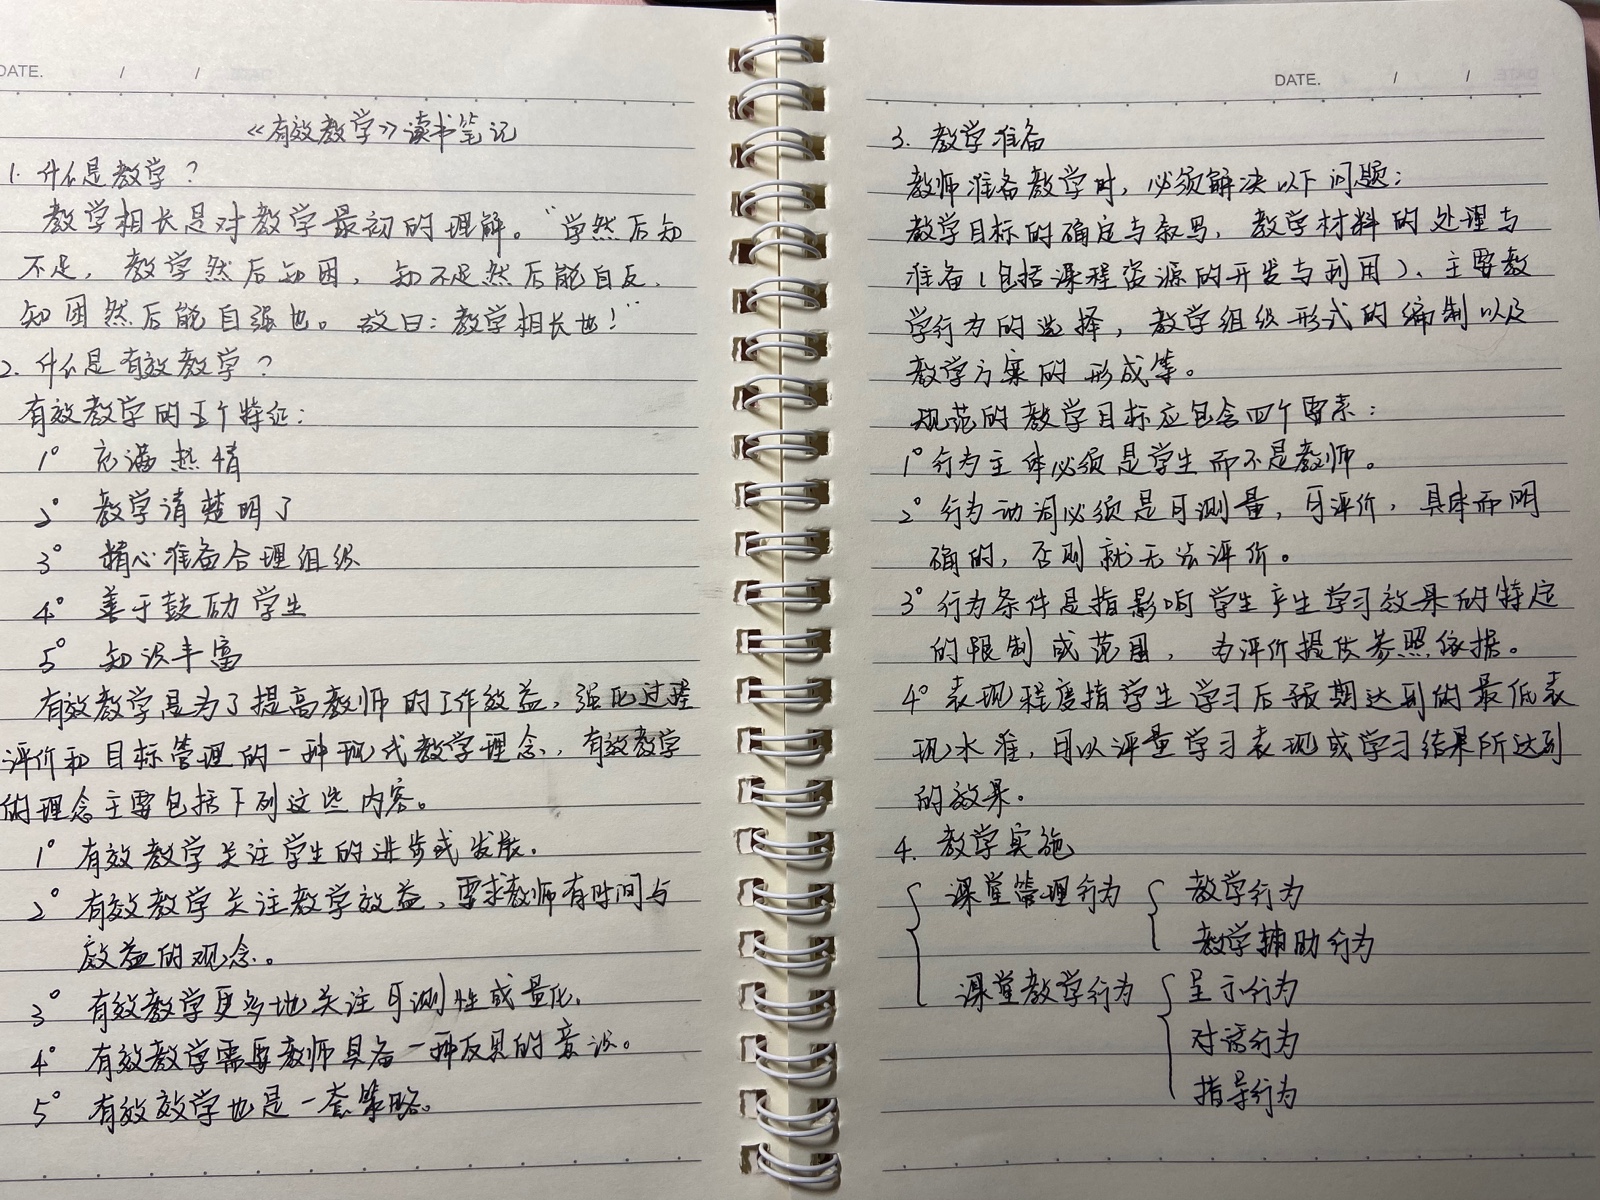 DATE. / /
《有效教学》读书笔记
1. 什么是教学？
教学相长是对教学最初的理解。“学然后知
不足，教学然后知困，知不足然后能自反，
知困然后能自强也。故曰：教学相长也！”
2. 什么是有效教学？
有效教学的五个特征：
1° 充满热情
2° 教学清楚明了
3° 精心准备合理组织
4° 善于鼓励学生
5° 知识丰富
有效教学是为了提高教师的工作效益，强化过程
评价和目标管理的一种现代教学理念，有效教学
的理念主要包括下列这些内容。
1° 有效教学关注学生的进步或发展.
2° 有效教学关注教学效益，要求教师有时间与
效益的观念。
3° 有效教学更多地关注可测性或量化.
4° 有效教学需要教师具备一种反思的意识。
5° 有效教学也是一套策略。
DATE. / /
3. 教学准备
教师准备教学时，必须解决以下问题：
教学目标的确定与叙写，教学材料的处理与
准备（包括课程资源的开发与利用）、主要教
学行为的选择，教学组织形式的编制以及
教学方案的形成等。
规范的教学目标应包含四个要素：
1° 行为主体必须是学生而不是教师。
2° 行为动词必须是可测量，可评价，具体而明
确的，否则就无法评价。
3° 行为条件是指影响学生产生学习效果的特定
的限制或范围，为评价提供参照依据。
4° 表现程度指学生学习后预期达到的最低表
现水准，可以评量学习表现或学习结果所达到
的效果.
4. 教学实施
课堂管理行为 教学行为
教学辅助行为
课堂教学行为 呈示行为
对话行为
指导行为